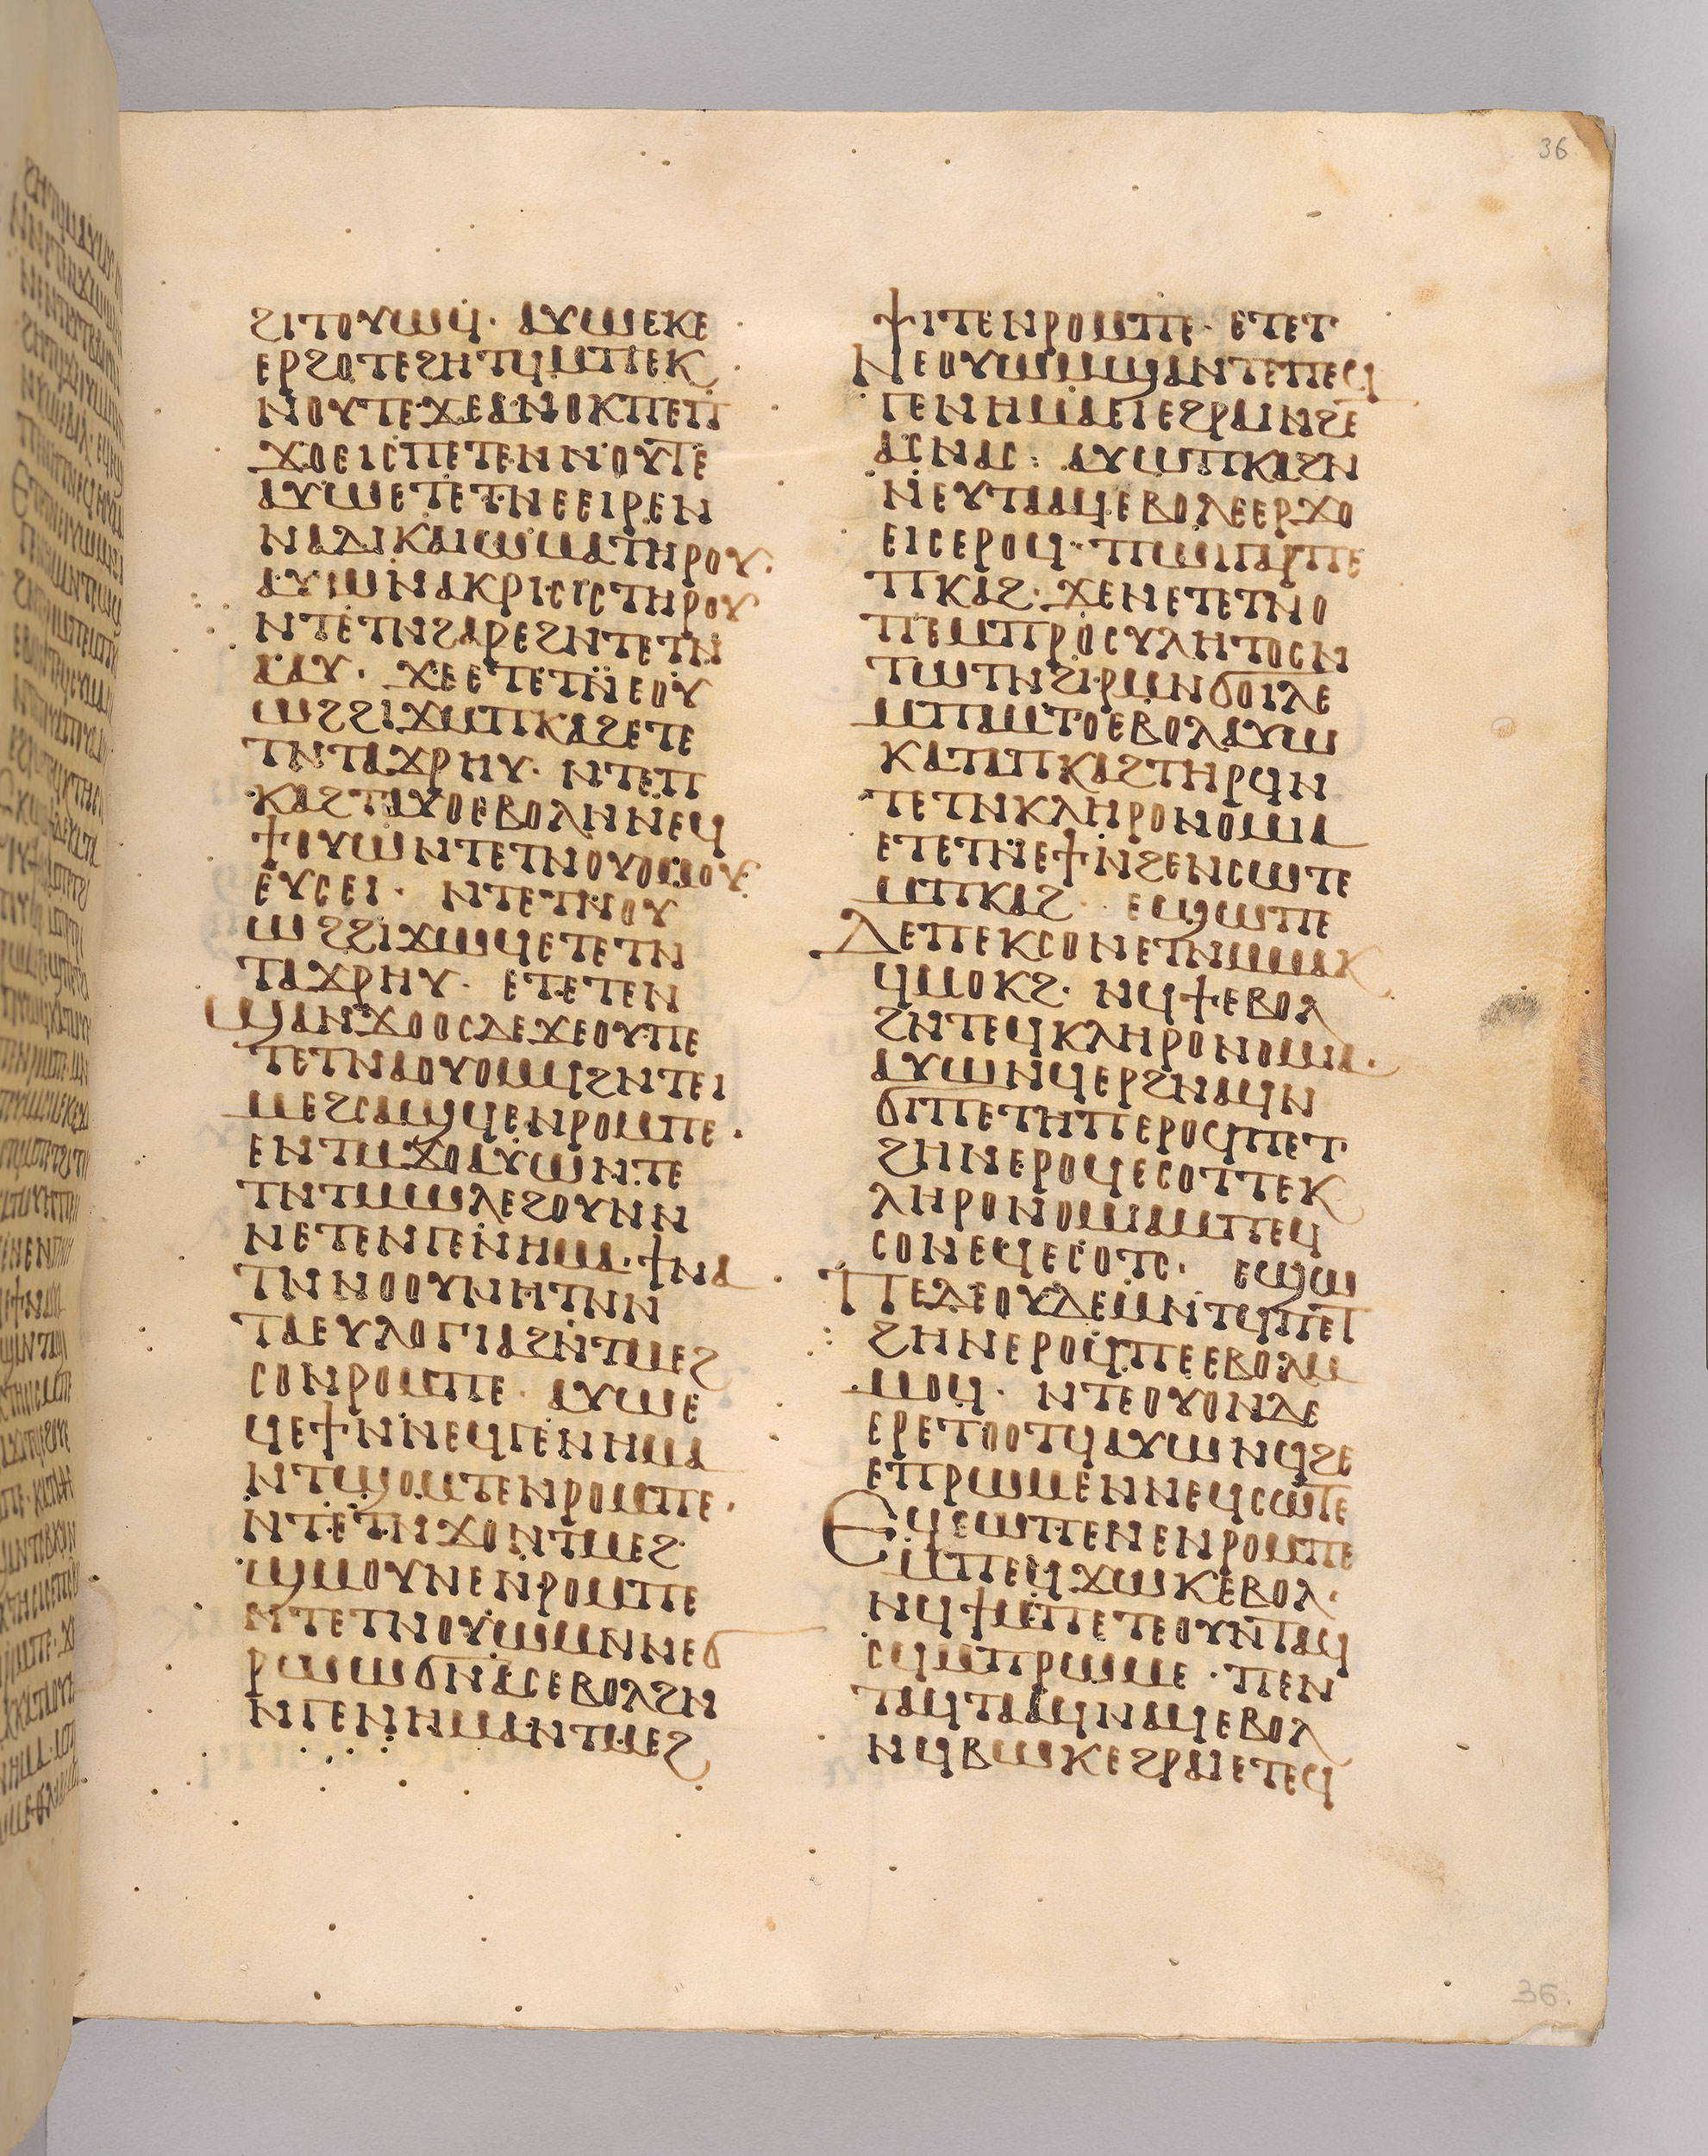 36
ϩⲓⲧⲟⲩⲱϥ· ⲁⲩⲱⲉⲕⲉ
ⲉⲣϩⲟⲧⲉϩⲏⲧϥⲙⲡⲉⲕ
ⲛⲟⲩⲧⲉ·ϫⲉⲁⲛⲟⲕⲡⲉⲡ
ϫⲟⲉⲓⲥⲡⲉⲧⲉⲛⲛⲟⲩⲧⲉ
ⲁⲩⲱⲉⲧⲉⲧⲛⲉⲉⲓⲣⲉⲛ
ⲛⲁⲇⲓⲕⲁⲓⲱⲙⲁⲧⲏⲣⲟⲩ·
ⲁⲩⲱⲛⲁⲕⲣⲓⲥⲓⲥⲧⲏⲣⲟⲩ
ⲛⲧⲉⲧⲛϩⲁⲣⲉϩⲛⲧⲉⲧⲛ
ⲁⲁⲩ· ϫⲉⲉⲧⲉⲧⲛⲉⲟⲩ
ⲱϩϩⲓϫⲙⲡⲕⲁϩⲉⲧⲉ
ⲧⲛⲧⲁϫⲣⲏⲩ· ⲛⲧⲉⲡ
ⲕⲁϩⲧⲁⲩⲟⲉⲃⲟⲗⲛⲛⲉϥ
ϯⲟⲩⲱⲛⲧⲉⲧⲛⲟⲩⲟⲙⲟⲩ
ⲉⲩⲥⲉⲓ· ⲛⲧⲉⲧⲛⲟⲩ
ⲱϩϩⲓϫⲱϥⲉⲧⲉⲧⲛ
ⲧⲁϫⲣⲏⲩ· ⲉⲧⲉⲧⲉⲛ
ϣⲁⲛϫⲟⲟⲥⲇⲉϫⲉⲟⲩⲡⲉ
ⲧⲉⲧⲛⲁⲟⲩⲟⲙϥϩⲛⲧⲉⲓ
ⲙⲉϩⲥⲁϣϥⲉⲛⲣⲟⲙⲡⲉ·
ⲉⲛⲧⲙϫⲟⲁⲩⲱⲛⲧⲉ
ⲧⲛⲧⲙⲱⲗⲉϩⲟⲩⲛⲛ
ⲛⲉⲧⲉⲛⲅⲉⲛⲏⲙⲁ·ϯⲛⲁ
ⲧⲛⲛⲟⲟⲩⲛⲏⲧⲛⲛ
ⲧⲁⲉⲩⲗⲟⲅⲓⲁϩⲛⲧⲙⲉϩ
ⲥⲟⲛⲣⲟⲙⲡⲉ· ⲁⲩⲱⲉ
ϥⲉϯⲛⲛⲉϥⲅⲉⲛⲏⲙⲁ
ⲛⲧϣⲟⲙⲧⲉⲛⲣⲟⲙⲡⲉ·
ⲛⲧⲉⲧⲛϫⲟⲛⲧⲙⲉϩ
ϣⲙⲟⲩⲛⲉⲛⲣⲟⲙⲡⲉ
ⲛⲧⲉⲧⲛⲟⲩⲱⲙⲛⲛⲉϭ
ⲣⲱⲱϭⲛⲁⲥⲉⲃⲟⲗϩⲛ
ⲛⲅⲉⲛⲏⲙⲁⲛⲧⲙⲉϩ
ⲯⲓⲧⲉⲛⲣⲟⲙⲡⲉ· ⲉⲧⲉⲧ
ⲛⲉⲟⲩⲱⲙϣⲁⲛⲧⲉⲡⲉϥ
ⲅⲉⲛⲏⲙⲁⲉⲓⲉϩⲣⲁⲓⲛϩⲉ
ⲁⲥⲛⲁⲥ: ⲁⲩⲱⲡⲕⲁϩⲛ
ⲛⲉⲩⲧⲁⲁϥⲉⲃⲟⲗⲉⲉⲣϫⲟ
ⲉⲓⲥⲉⲣⲟϥ·ⲡⲱⲓⲅⲁⲣⲡⲉ
ⲡⲕⲁϩ·ϫⲉⲛⲉⲧⲉⲧⲛⲟ
ⲡⲉⲙⲡⲣⲟⲥⲩⲗⲏⲧⲟⲥⲛ
ⲧⲱⲧⲛϩⲓⲣⲙⲛϭⲟⲓⲗⲉ
ⲙⲡⲁⲙⲧⲟⲉⲃⲟⲗⲁⲩⲱ
ⲕⲁⲧⲁⲡⲕⲁϩⲧⲏⲣϥⲛ
ⲧⲉⲧⲛⲕⲗⲏⲣⲟⲛⲟⲙⲓⲁ
ⲉⲧⲉⲧⲛⲉϯⲛϩⲉⲛⲥⲱⲧⲉ
ⲙⲡⲕⲁϩ· ⲉϣⲱⲡⲉ
ⲇⲉⲡⲉⲕⲥⲟⲛⲉⲧⲛⲙⲙⲁⲕ
ϥⲙⲟⲕϩ· ⲛϥϯⲉⲃⲟⲗ
ϩⲛⲧⲉϥⲕⲗⲏⲣⲟⲛⲟⲙⲓⲁ·
ⲁⲩⲱⲛϥⲉⲣϩⲛⲁϥⲛ
ϭⲓⲡⲉⲧⲏⲡⲉⲣⲟϥⲡⲉⲧ
ϩⲏⲛⲉⲣⲟϥⲉⲥⲟⲧⲧⲉⲕ
ⲗⲏⲣⲟⲛⲟⲙⲓⲁⲙⲡⲉϥ
ⲥⲟⲛⲉϥⲉⲥⲟⲧⲥ· ⲉϣⲱ
ⲡⲉⲇⲉⲟⲩⲇⲉⲙⲛⲧϥⲡⲉⲧ
ϩⲏⲛⲉⲣⲟϥⲡⲉⲉⲃⲟⲗⲙ
ⲙⲟϥ· ⲛⲧⲉⲟⲩⲟⲛⲇⲉ
ⲉⲣⲉⲧⲟⲟⲧϥⲁⲩⲱⲛϥϩⲉ
ⲉⲡⲣⲱⲙⲉⲛⲛⲉϥⲥⲱⲧⲉ
ⲉϥⲉⲱⲡⲉⲛⲉⲛⲣⲟⲙⲡⲉ
ⲙⲡⲉϥϫⲱⲕⲉⲃⲟⲗ·
ⲛϥϯⲙⲡⲉⲧⲉⲟⲩⲛⲧⲁϥ
ⲥϥⲙⲡⲣⲱⲙⲉ·ⲡⲉⲛ
ⲧⲁϥⲧⲁⲁϥⲛⲁϥⲉⲃⲟⲗ
ⲛϥⲃⲱⲕⲉϩⲣⲁⲓⲉⲧⲉϥ
36.